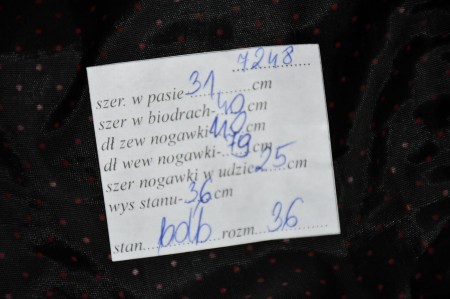 7248
szer. w pasie-31cm
szer w biodrach-40cm
dł zew nogawki-110cm
dł wew nogawki-79cm
szer nogawki w udzie25cm
wys stanu-36cm
stan bdb rozm 36